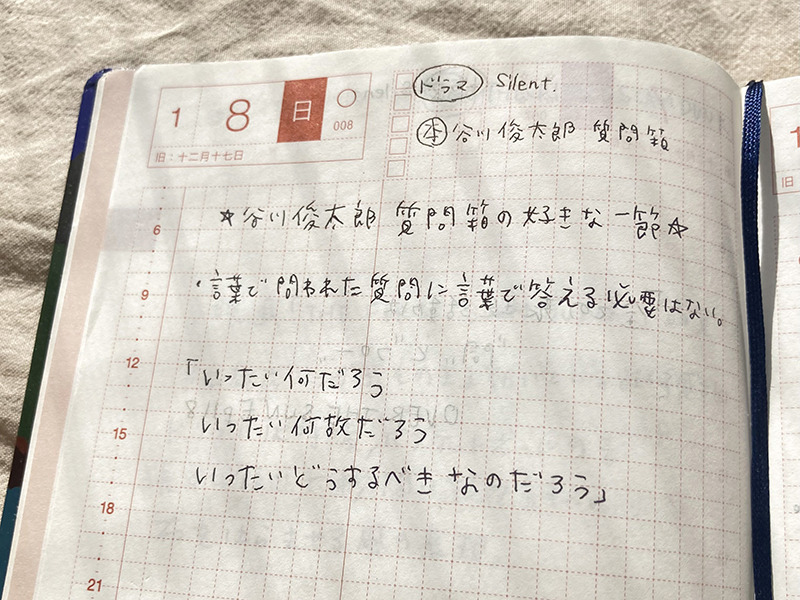 1 8 日 ○
008
旧：十二月十七日
ドラマ Silent.
本 谷川俊太郎 質問箱
☆谷川俊太郎 質問箱の好きな一節☆
・言葉で問われた質問に言葉で答える必要はない。
「いったい何だろう
いったい何故だろう
いったいどうするべきなのだろう」
6
9
12
15
18
21
1
旧